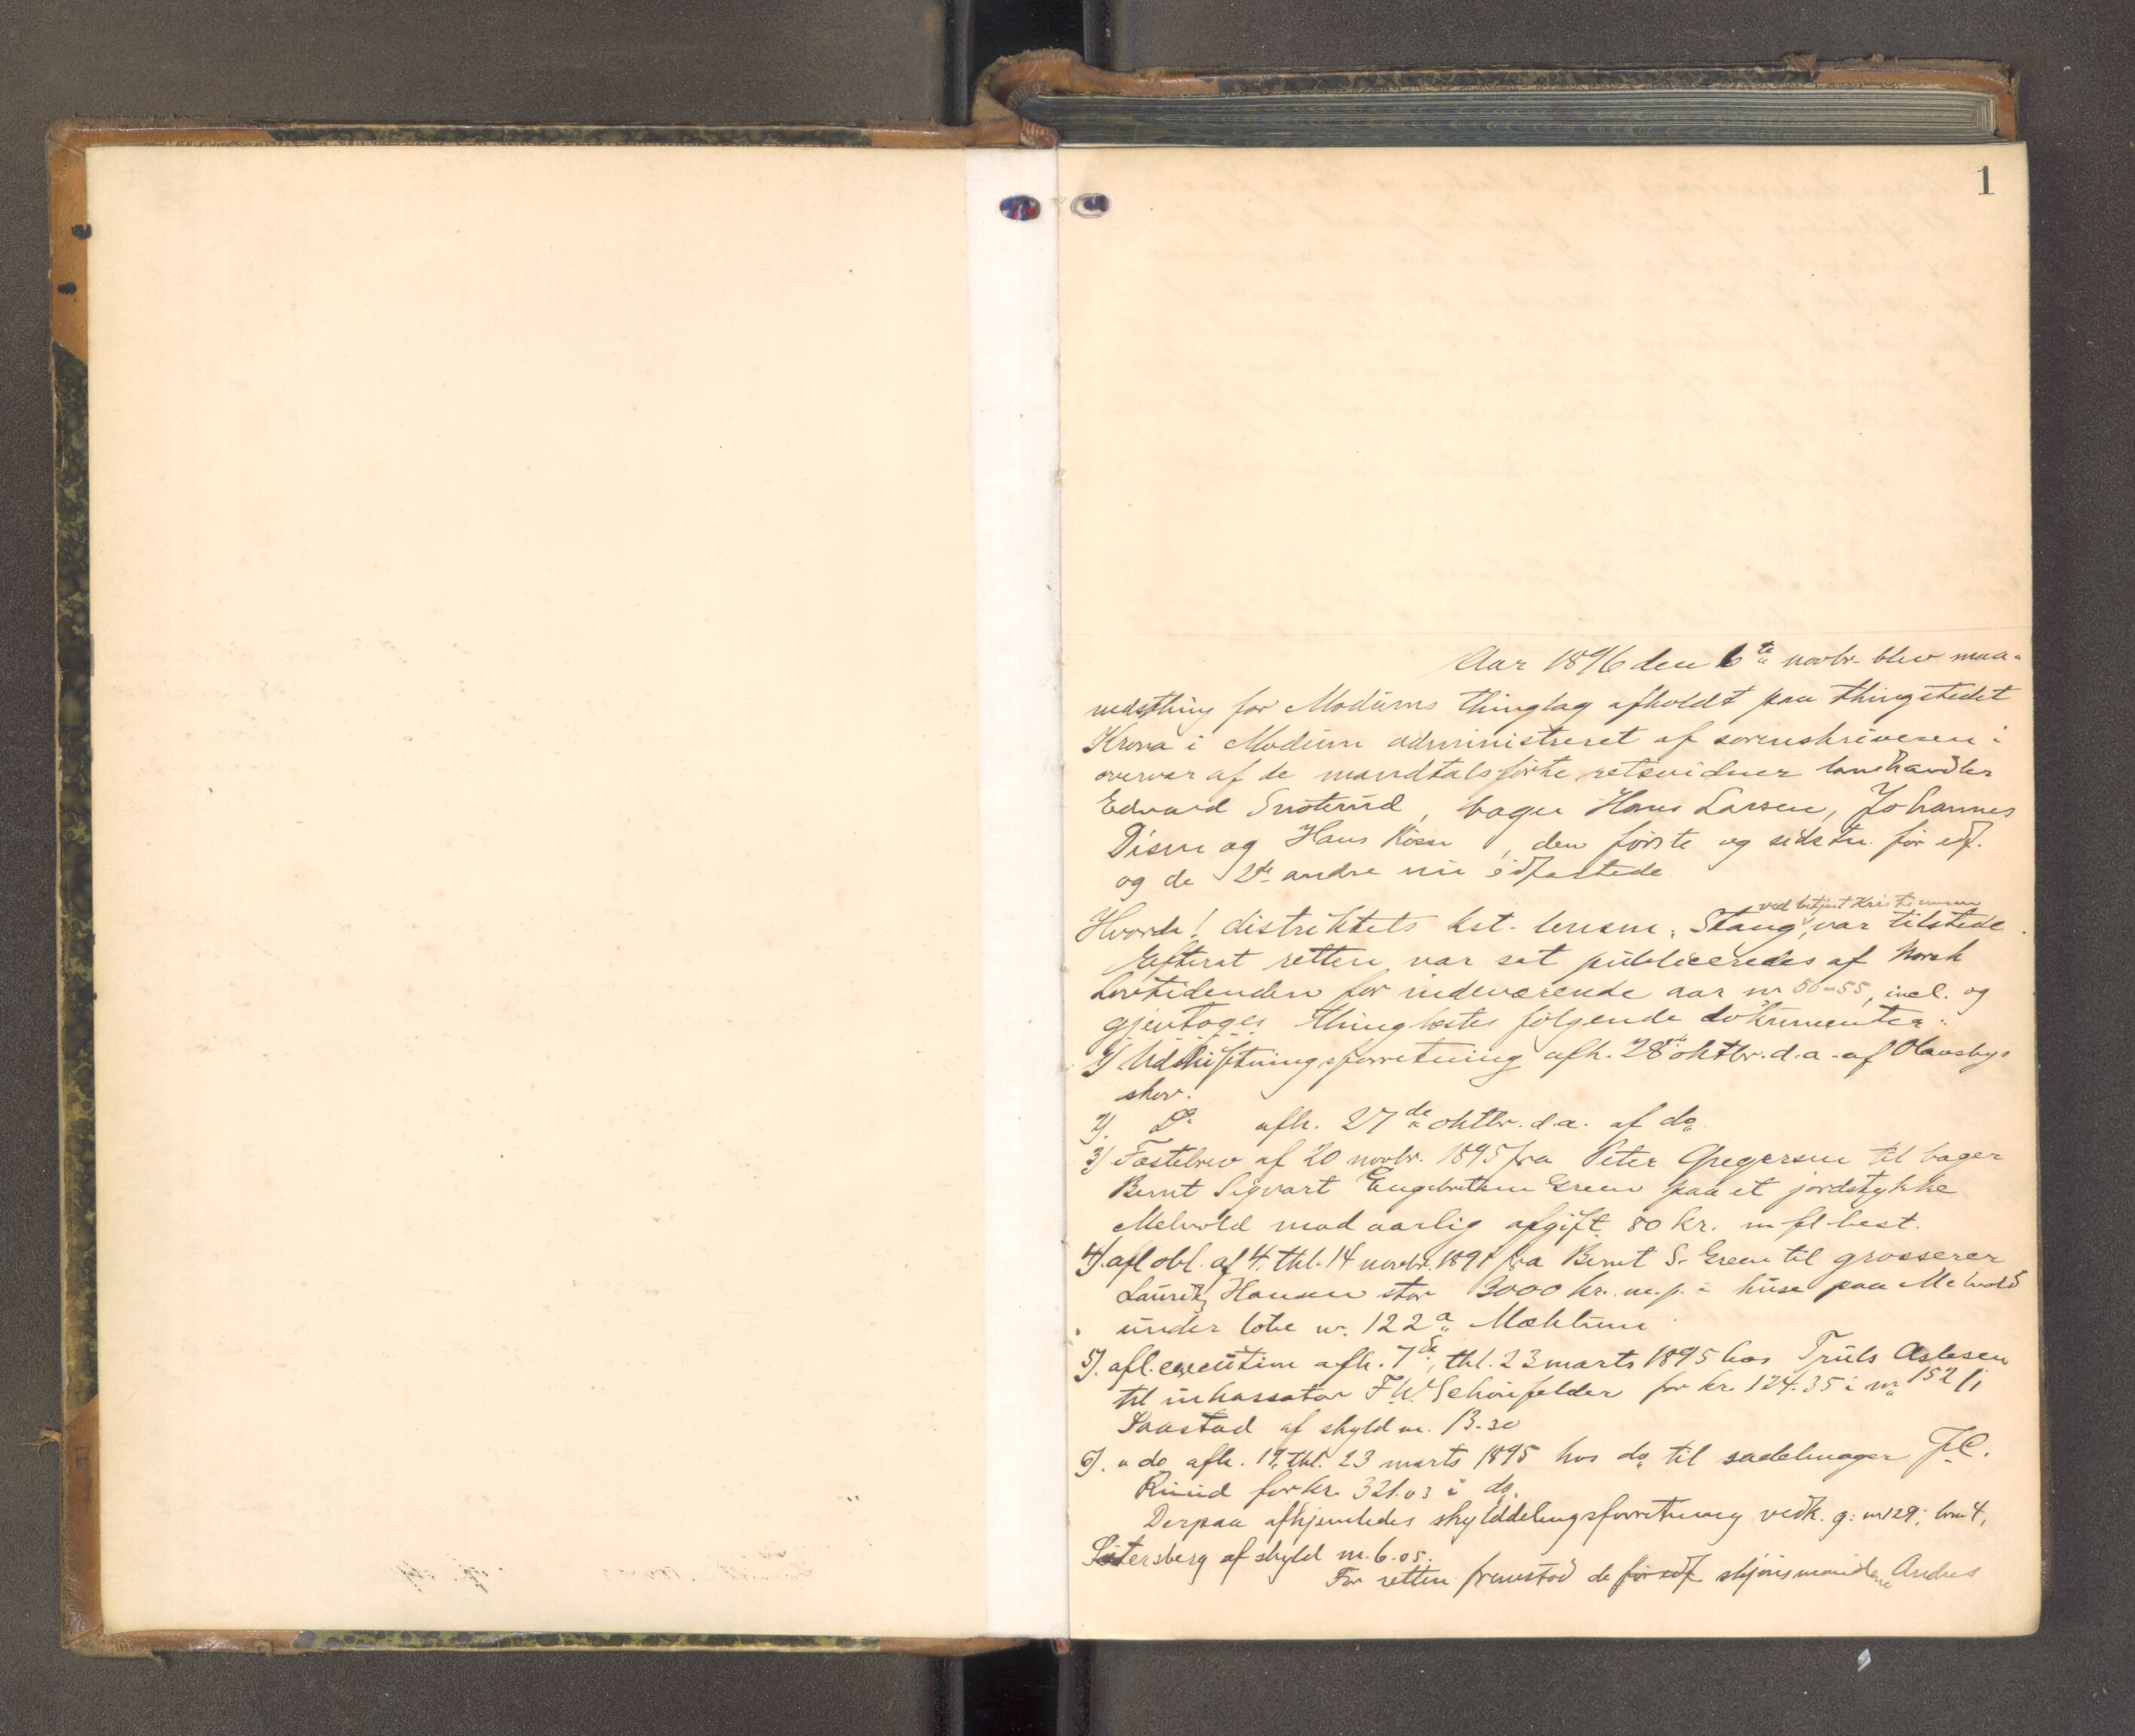 1
Aar 1896 den 6te novbr. blev maa-
nedsthing for Modums thinglag afholdt paa thingstedet
Krona i Modum administreret af sorenskriveren i
overvær af de mandtalsførte retsvidner landhandler
Edvard Snoterud, bager Hans Larsen, Johannes
Disen og Hans, den første og sidste før edf.
og de 2de andre nu edfæstede
ved betjent Kristiansen
Hvorda! distriktets kst. lensm. Stang, var tilstede.
Efterat retten var sat publiceredes af Norsk
Lovtidenden for indeværende aar nr 50-55, incl. og
thinglæstes følgende dokumenter:
1) Udskiftningsforretning afh. 28de oktbr. d.a. af Olavsbys
skov.
2). Do afh. 27de oktbr. d.a. af do
3) Fæstebrev af 20 novbr. 1895 fra Peter Gregersen til bager
Bernt Sigvart Engebretsen Green paa et jordstykke
Melvold mod aarlig afgift 80 kr. m fl best.
4). afl obl. af 4. thl. 14 novbr. 1891 fra Bernt S. Green til grosserer
Lauritz Hansen stor 3000 kr. m.p. i huse paa Melvold
under løbe nr. 122a
5). afl. execution afh. 7de, thl. 23 marts 1895 hos Truls Aslesen
til inkassator F.W. Schönfelder for kr. 124.35 i nr 152/1
Saastad af skyld m. 13.30
6). " do afh. 19. thl. 23 marts 1895 hos do til sadelmager J.C.
Ruud for kr. 321.03 i do.
Derpaa afhjemledes skylddelingsforretning vedk. g: nr 129, brn 4,
Sætersberg af skyld m. 6.05.
For retten fremstod de før edf skjønsmændene Anders